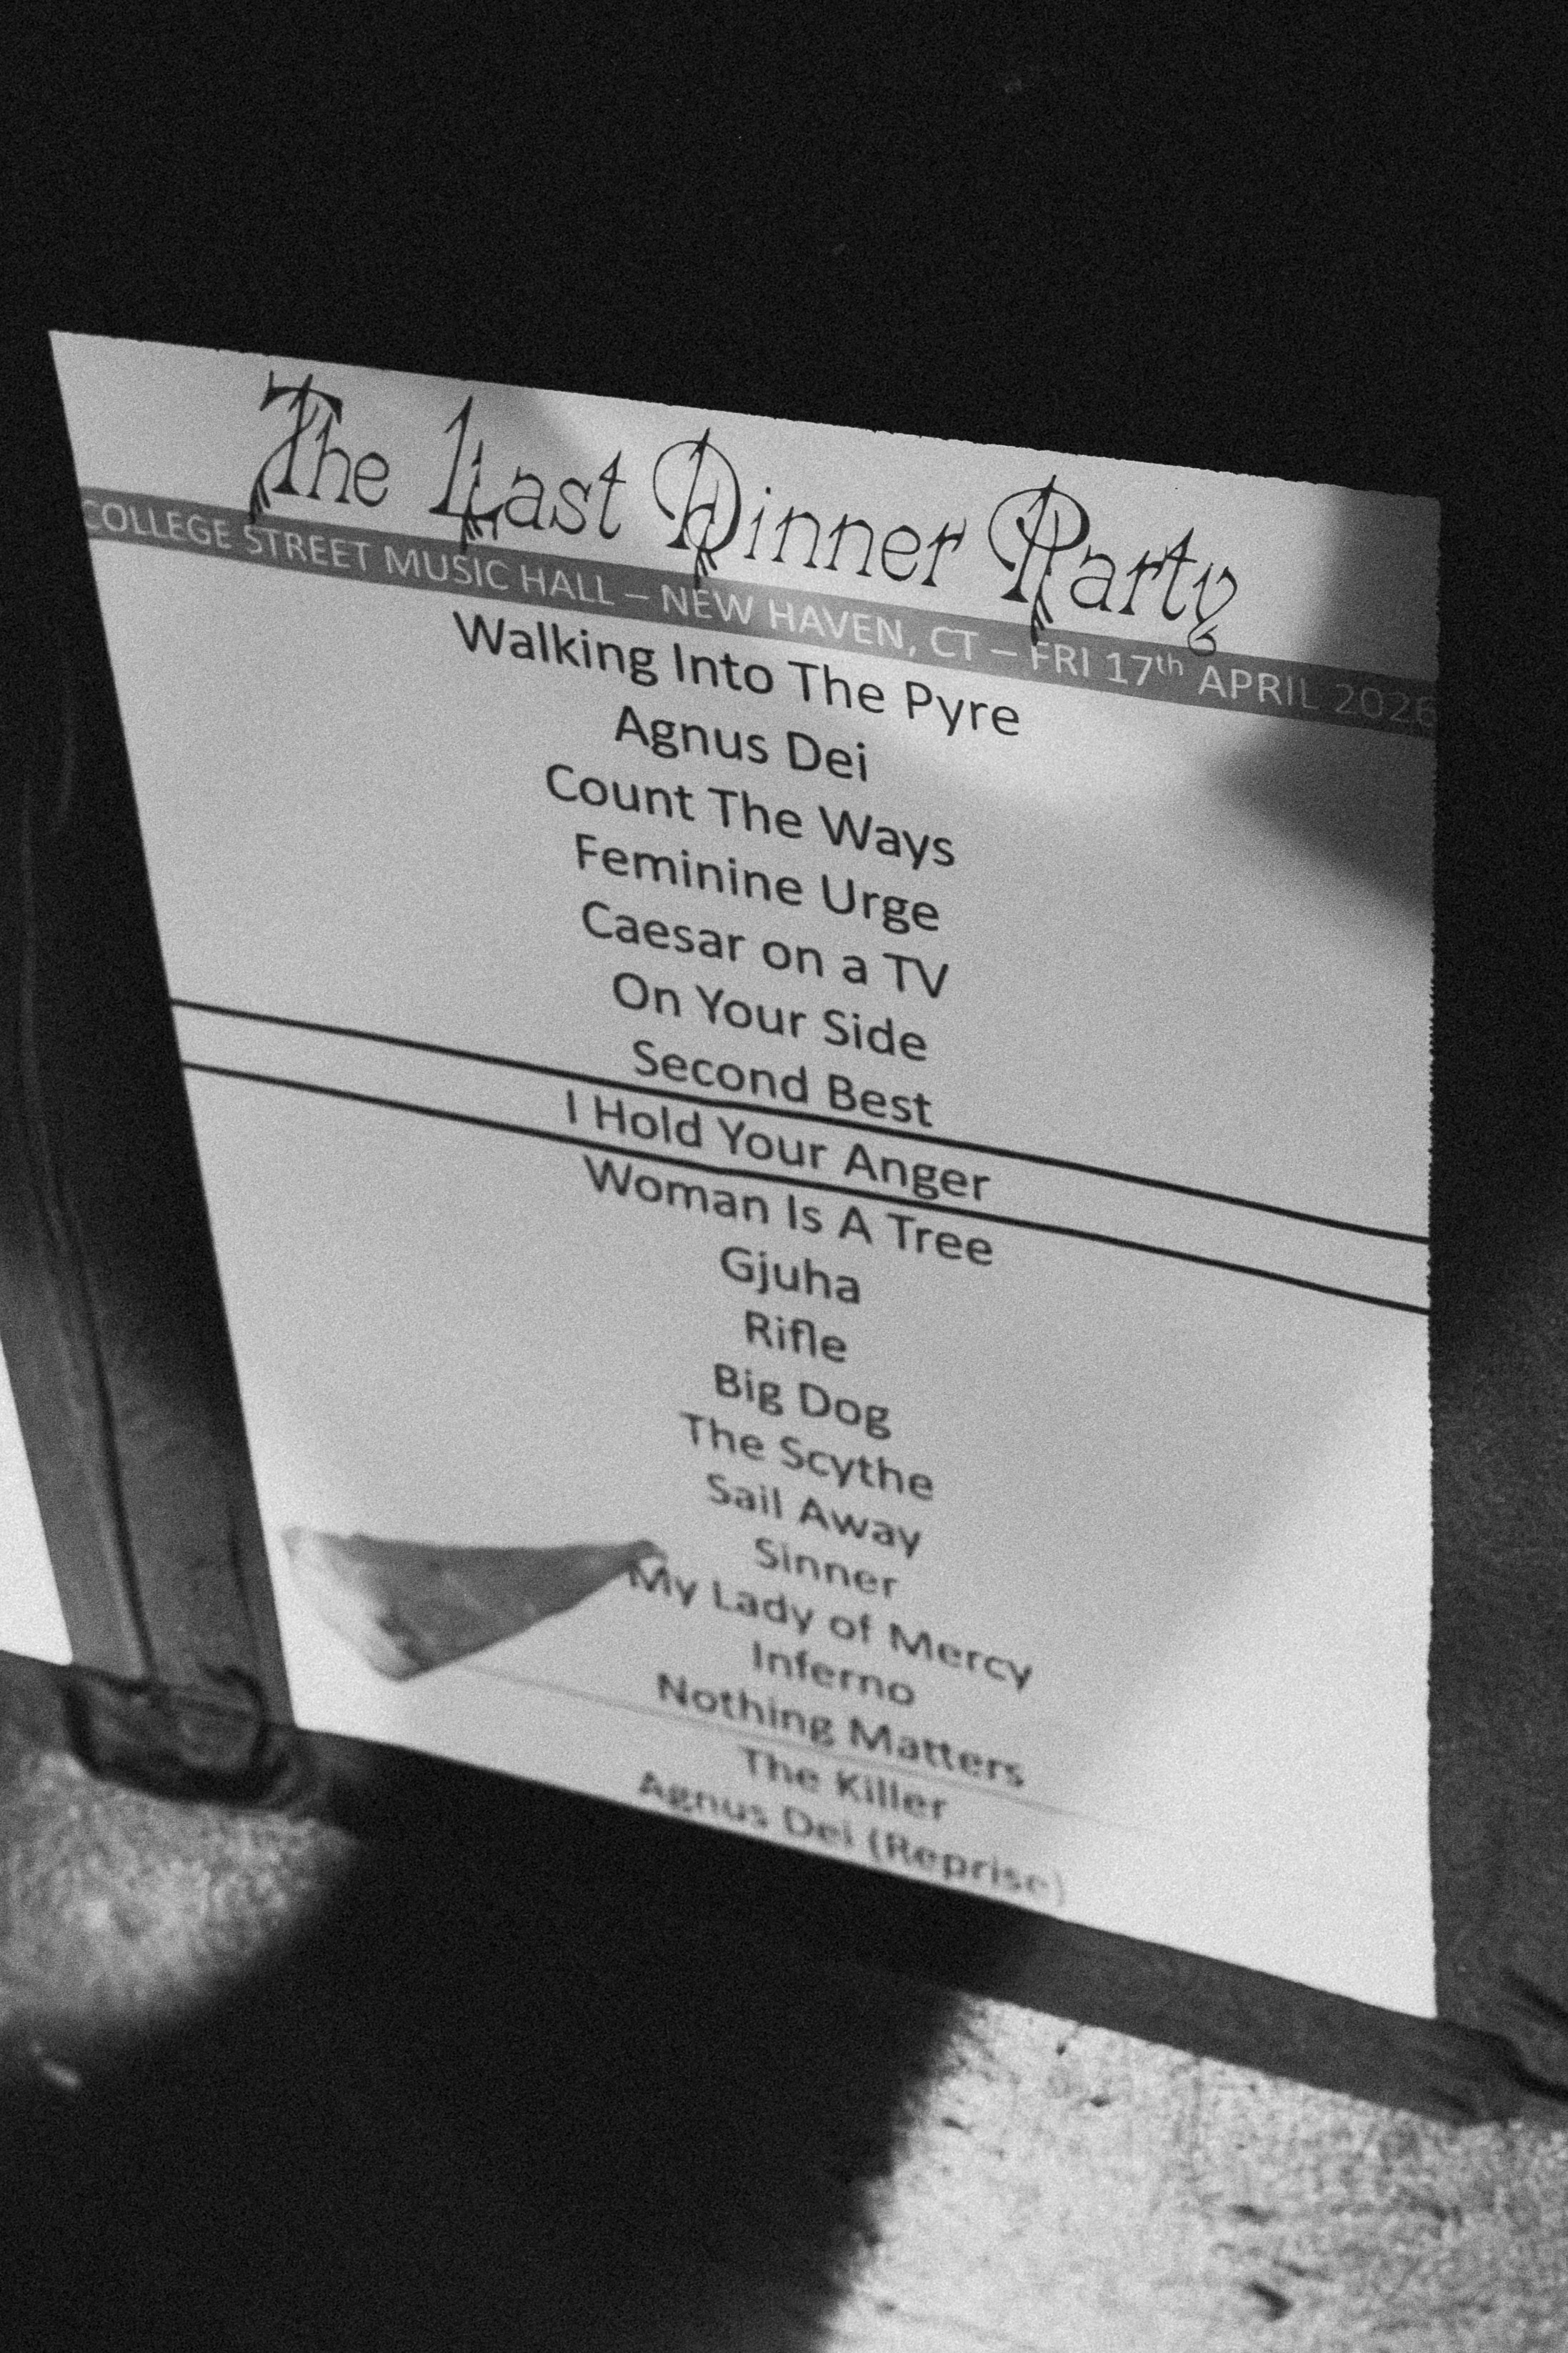 The Last Dinner Party
COLLEGE STREET MUSIC HALL – NEW HAVEN, CT – FRI 17th APRIL 2026
Walking Into The Pyre
Agnus Dei
Count The Ways
Feminine Urge
Caesar on a TV
On Your Side
Second Best
I Hold Your Anger
Woman Is A Tree
Gjuha
Rifle
Big Dog
The Scythe
Sail Away
Sinner
My Lady of Mercy
Inferno
Nothing Matters
The Killer
Agnus Dei (Reprise)